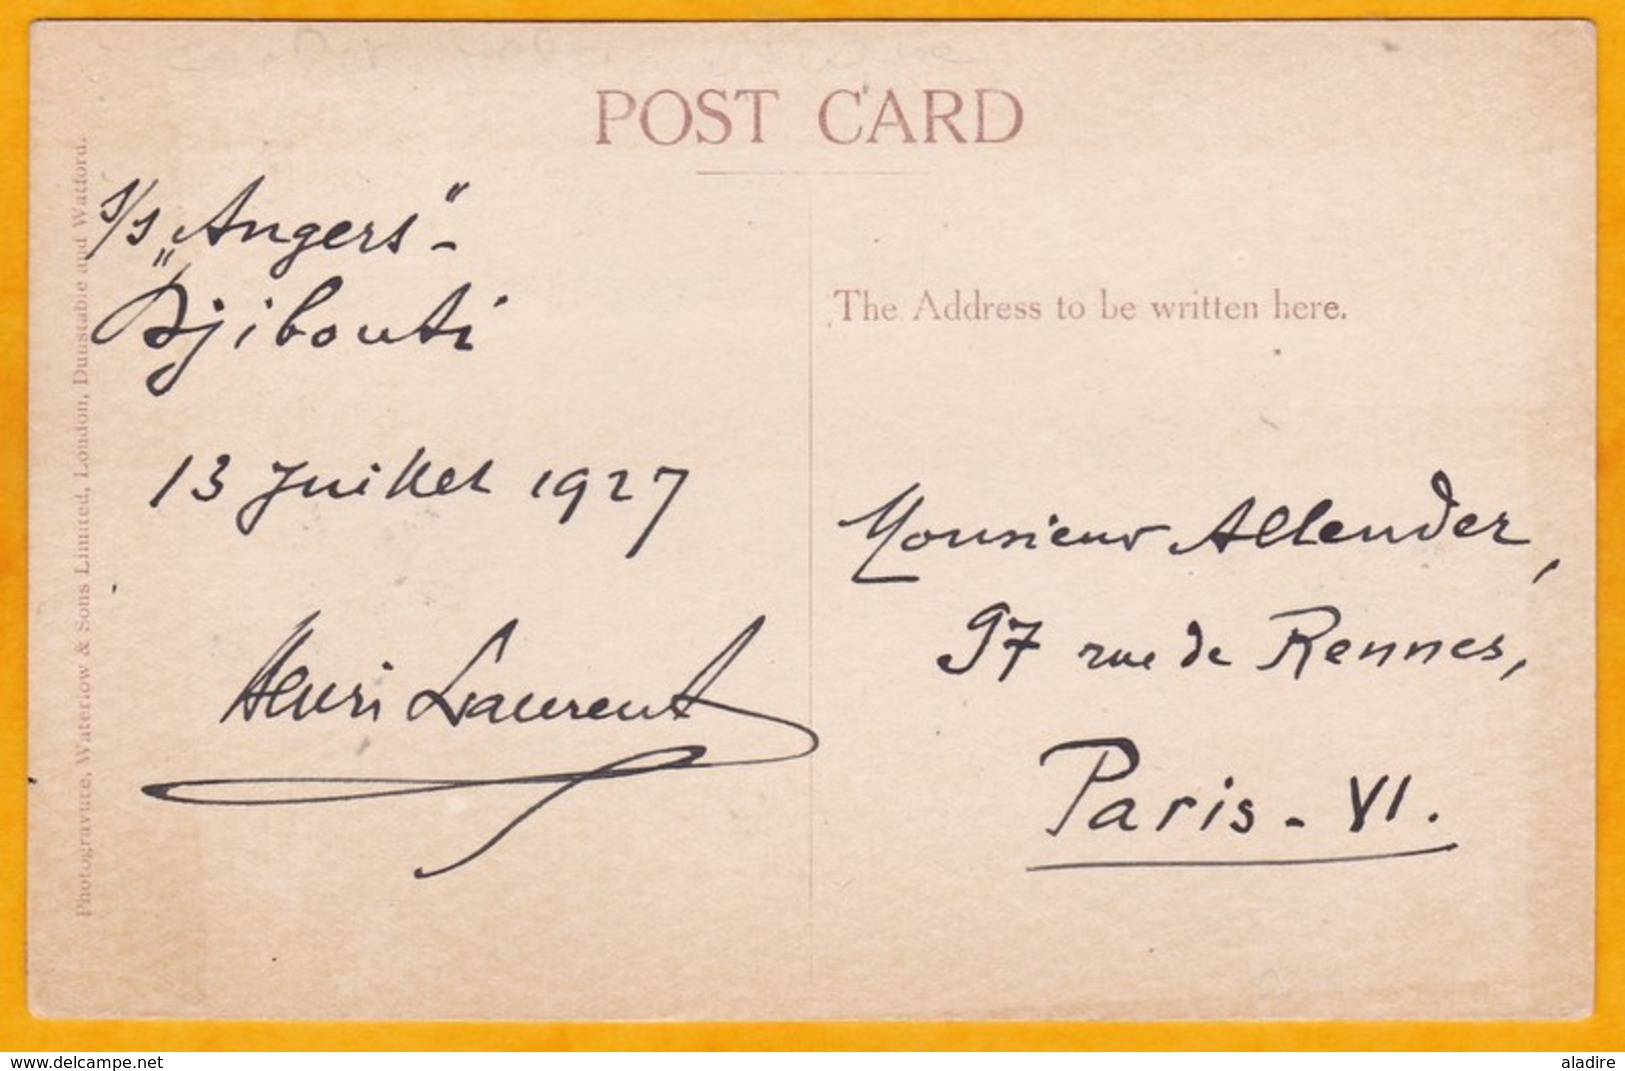 POST CARD
s/s „Angers" -
Djibouti
13 Juillet 1927
Henri Laurent
Photogravure, Waterlow & Sons Limited, London, Dunstable and Watford.
The Address to be written here.
Monsieur Allender,
97 rue de Rennes,
Paris - VI.
www.delcampe.net
aladire